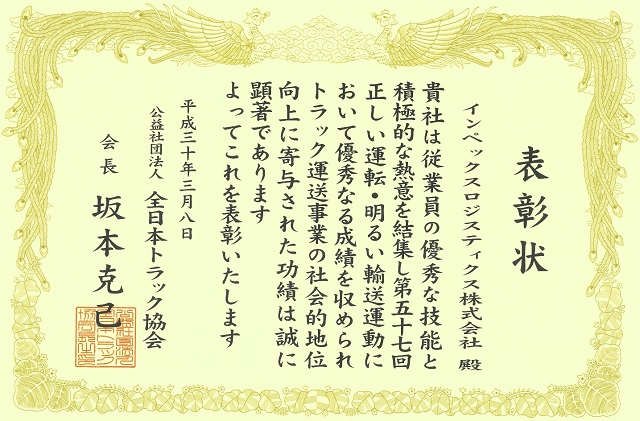 表彰状
インペックスロジスティクス株式会社 殿
貴社は従業員の優秀な技能と
積極的な熱意を結集し第五十七回
正しい運転・明るい輸送運動に
おいて優秀なる成績を収められ
トラック運送事業の社会的地位
向上に寄与された功績は誠に
顕著であります
よってこれを表彰いたします
平成三十年三月八日
公益社団法人 全日本トラック協会
会長 坂本克己